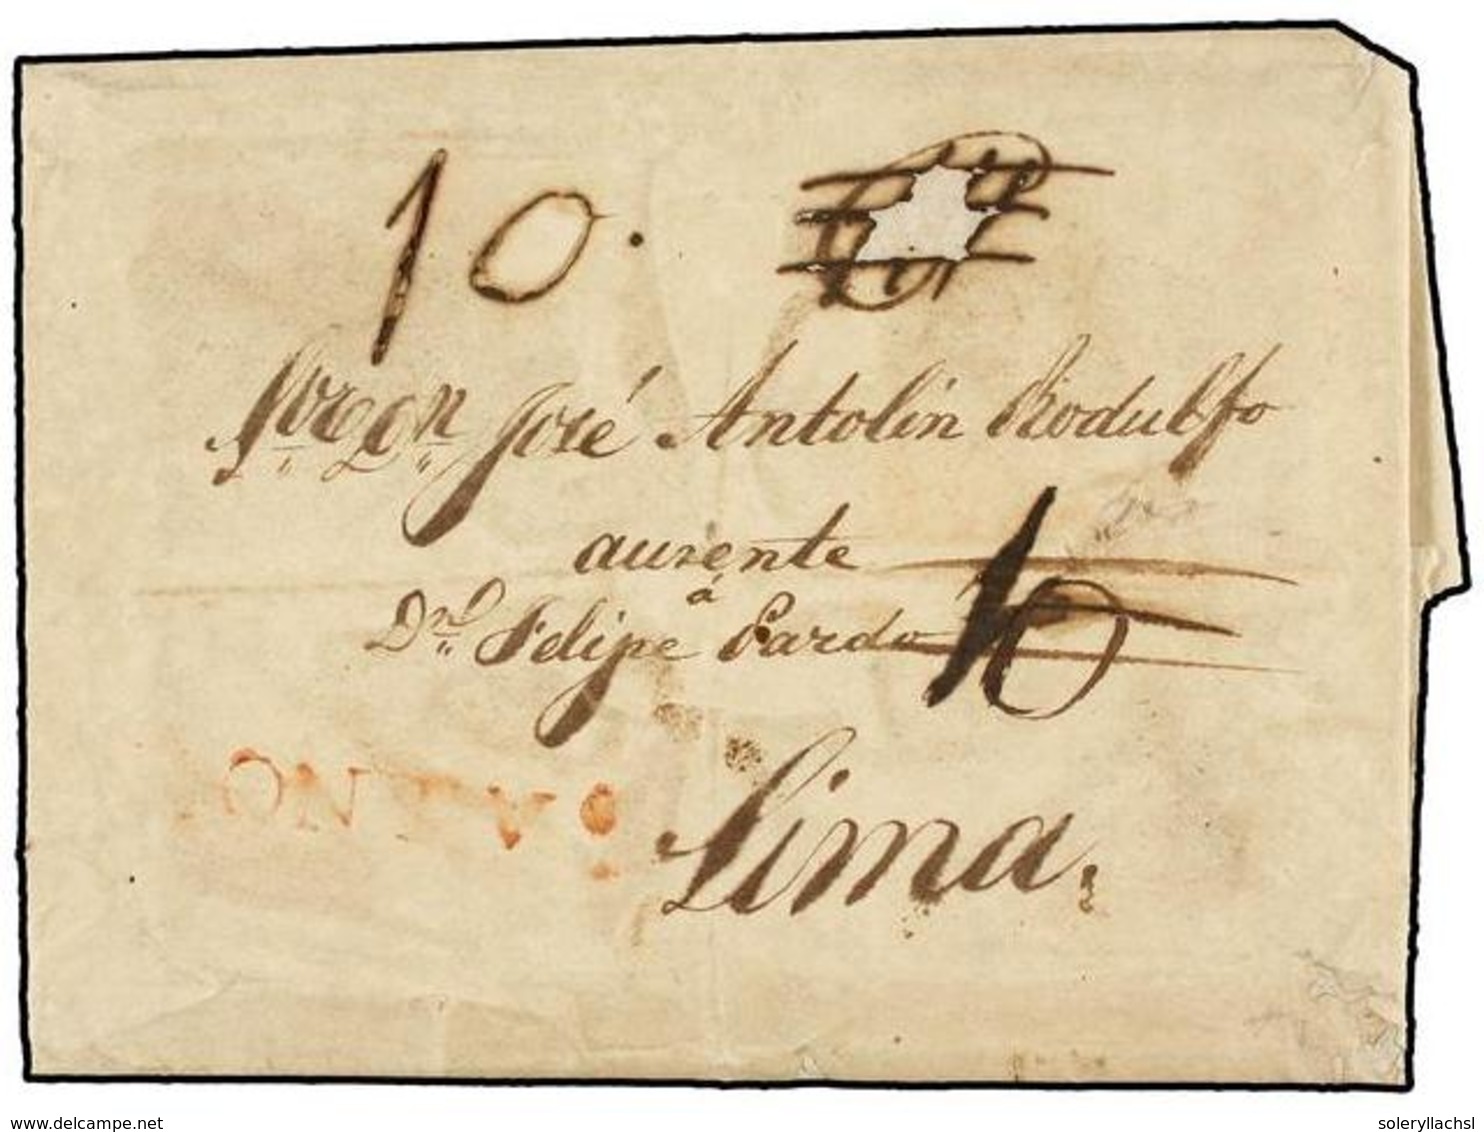 10.
Sor. Dn. José Antolín Rodulfo
ausente
á
Dn. Felipe Pardo
10
Lima.
www.delcampe.net
soleryllachsl